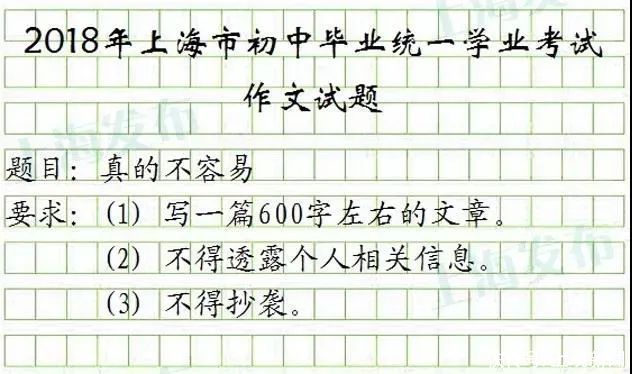 2018年上海市初中毕业统一学业考试
作文试题
题目：真的不容易
要求：(1) 写一篇600字左右的文章。
(2) 不得透露个人相关信息。
(3) 不得抄袭。
上海发布
上海发布